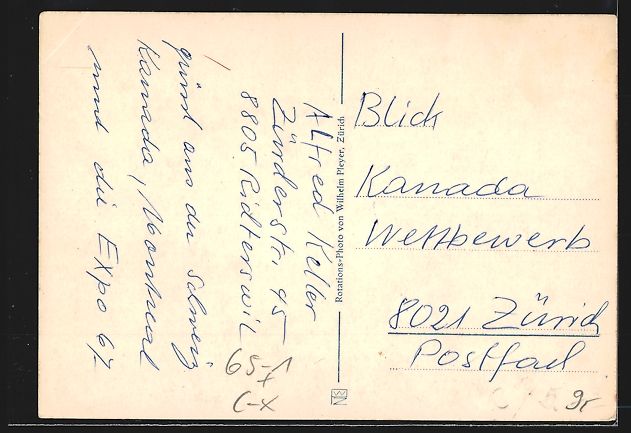 Alfred Keller
Zürcherstr. 45
8805 Richterswil
grüsst aus der Schweiz
Kanada, Montreal
und die Expo 67
Rotations-Photo von Wilhelm Pleyer, Zürich
Blick
Kanada
Wettbewerb
8021 Zürich
Postfach
65-1
C-X
gr